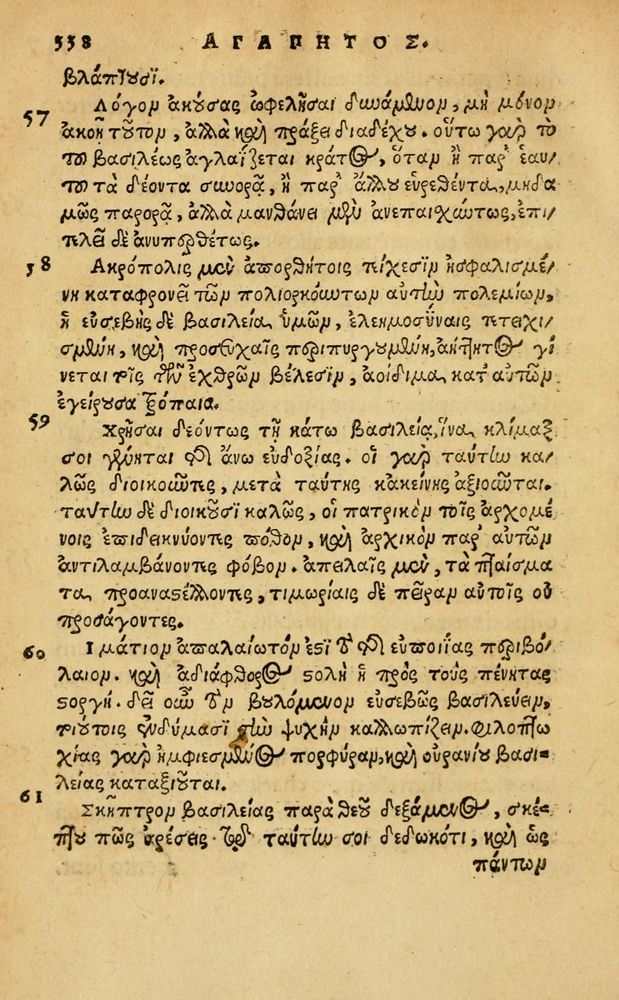 338 ΑΓΑΠΗΤΟΣ.
βλάπτουσϊ.
57 Λόγον ἀκούσας ὠφελῆσαι δυνάμενον, μὴ μόνον
ἄκοντα τοῦτον, ἀλλὰ καὶ πράξει διαδέχου. οὕτω γὰρ τὸ
τοῦ βασιλέως ἀγλαΐζεται κράτος, ὅταν ἢ παρ' ἑαυ/
τοῦ τὰ δέοντα συνορᾷ, ἢ παρ' ἄλλου εὑρεθέντα, μηδα
μῶς παρορᾷ, ἀλλὰ μανθάνει μὲν ἀνεπαιχύντως, ἐπι/
τελεῖ δὲ ἀνυπερθέτως.
38 Ακρόπολις μὲν ἀπορθήτοις τείχεσϊν ἠσφαλισμέ/
νη καταφρονεῖ τῶν πολιορκούντων αὐτὴν πολεμίων,
ἡ εὐσεβὴς δὲ βασιλεία ὑμῶν, ἐλεημοσύναις τετειχι/
σμένη, καὶ προσευχαῖς περιπυργουμένη, ἀήττητος γί
νεται τοῖς τῶν ἐχθρῶν βέλεσϊν, ἀοίδιμα κατ' αὐτῶν
ἐγείρουσα τρόπαια.
59 Χρῆσαι δεόντως τῇ κάτω βασιλείᾳ, ἵνα κλίμαξ
σοι γένηται τῆς ἄνω εὐδοξίας. οἱ γὰρ ταύτην κα/
λῶς διοικοῦντες, μετὰ ταύτης κἀκείνης ἀξιοῦνται.
ταύτην δὲ διοικοῦσϊ καλῶς, οἱ πατρικὸν τοῖς ἀρχομέ
νοις ἐπιδεικνύοντες πόθον, καὶ ἀρχικὸν παρ' αὐτῶν
ἀντιλαμβάνοντες φόβον. ἀπειλαῖς μὲν, τὰ πταίσμα
τα προαναστέλλοντες, τιμωρίαις δὲ πεῖραν αὐτοῖς οὐ
προσάγοντες.
60 Ιμάτιον ἀπαλαίωτόν ἐστϊ τὸ τῆς εὐποιΐας περιβό/
λαιον. καὶ ἀδιάφθορος στολὴ ἡ πρὸς τοὺς πένητας
στοργή. δεῖ οὖν τὸν βουλόμενον εὐσεβῶς βασιλεύειν,
τοιούτοις ἐνδύμασϊ τὴν ψυχὴν καλλωπίζειν. Φιλοπτω
χίας γὰρ ἠμφιεσμένος πορφύραν, καὶ οὐρανίου βασι=
λείας καταξιοῦται.
61 Σκῆπτρον βασιλείας παρὰ θεοῦ δεξάμενος, σκέ=
πτου πῶς ἀρέσεις τῷ ταύτην σοι δεδωκότι, καὶ ὡς
πάντων